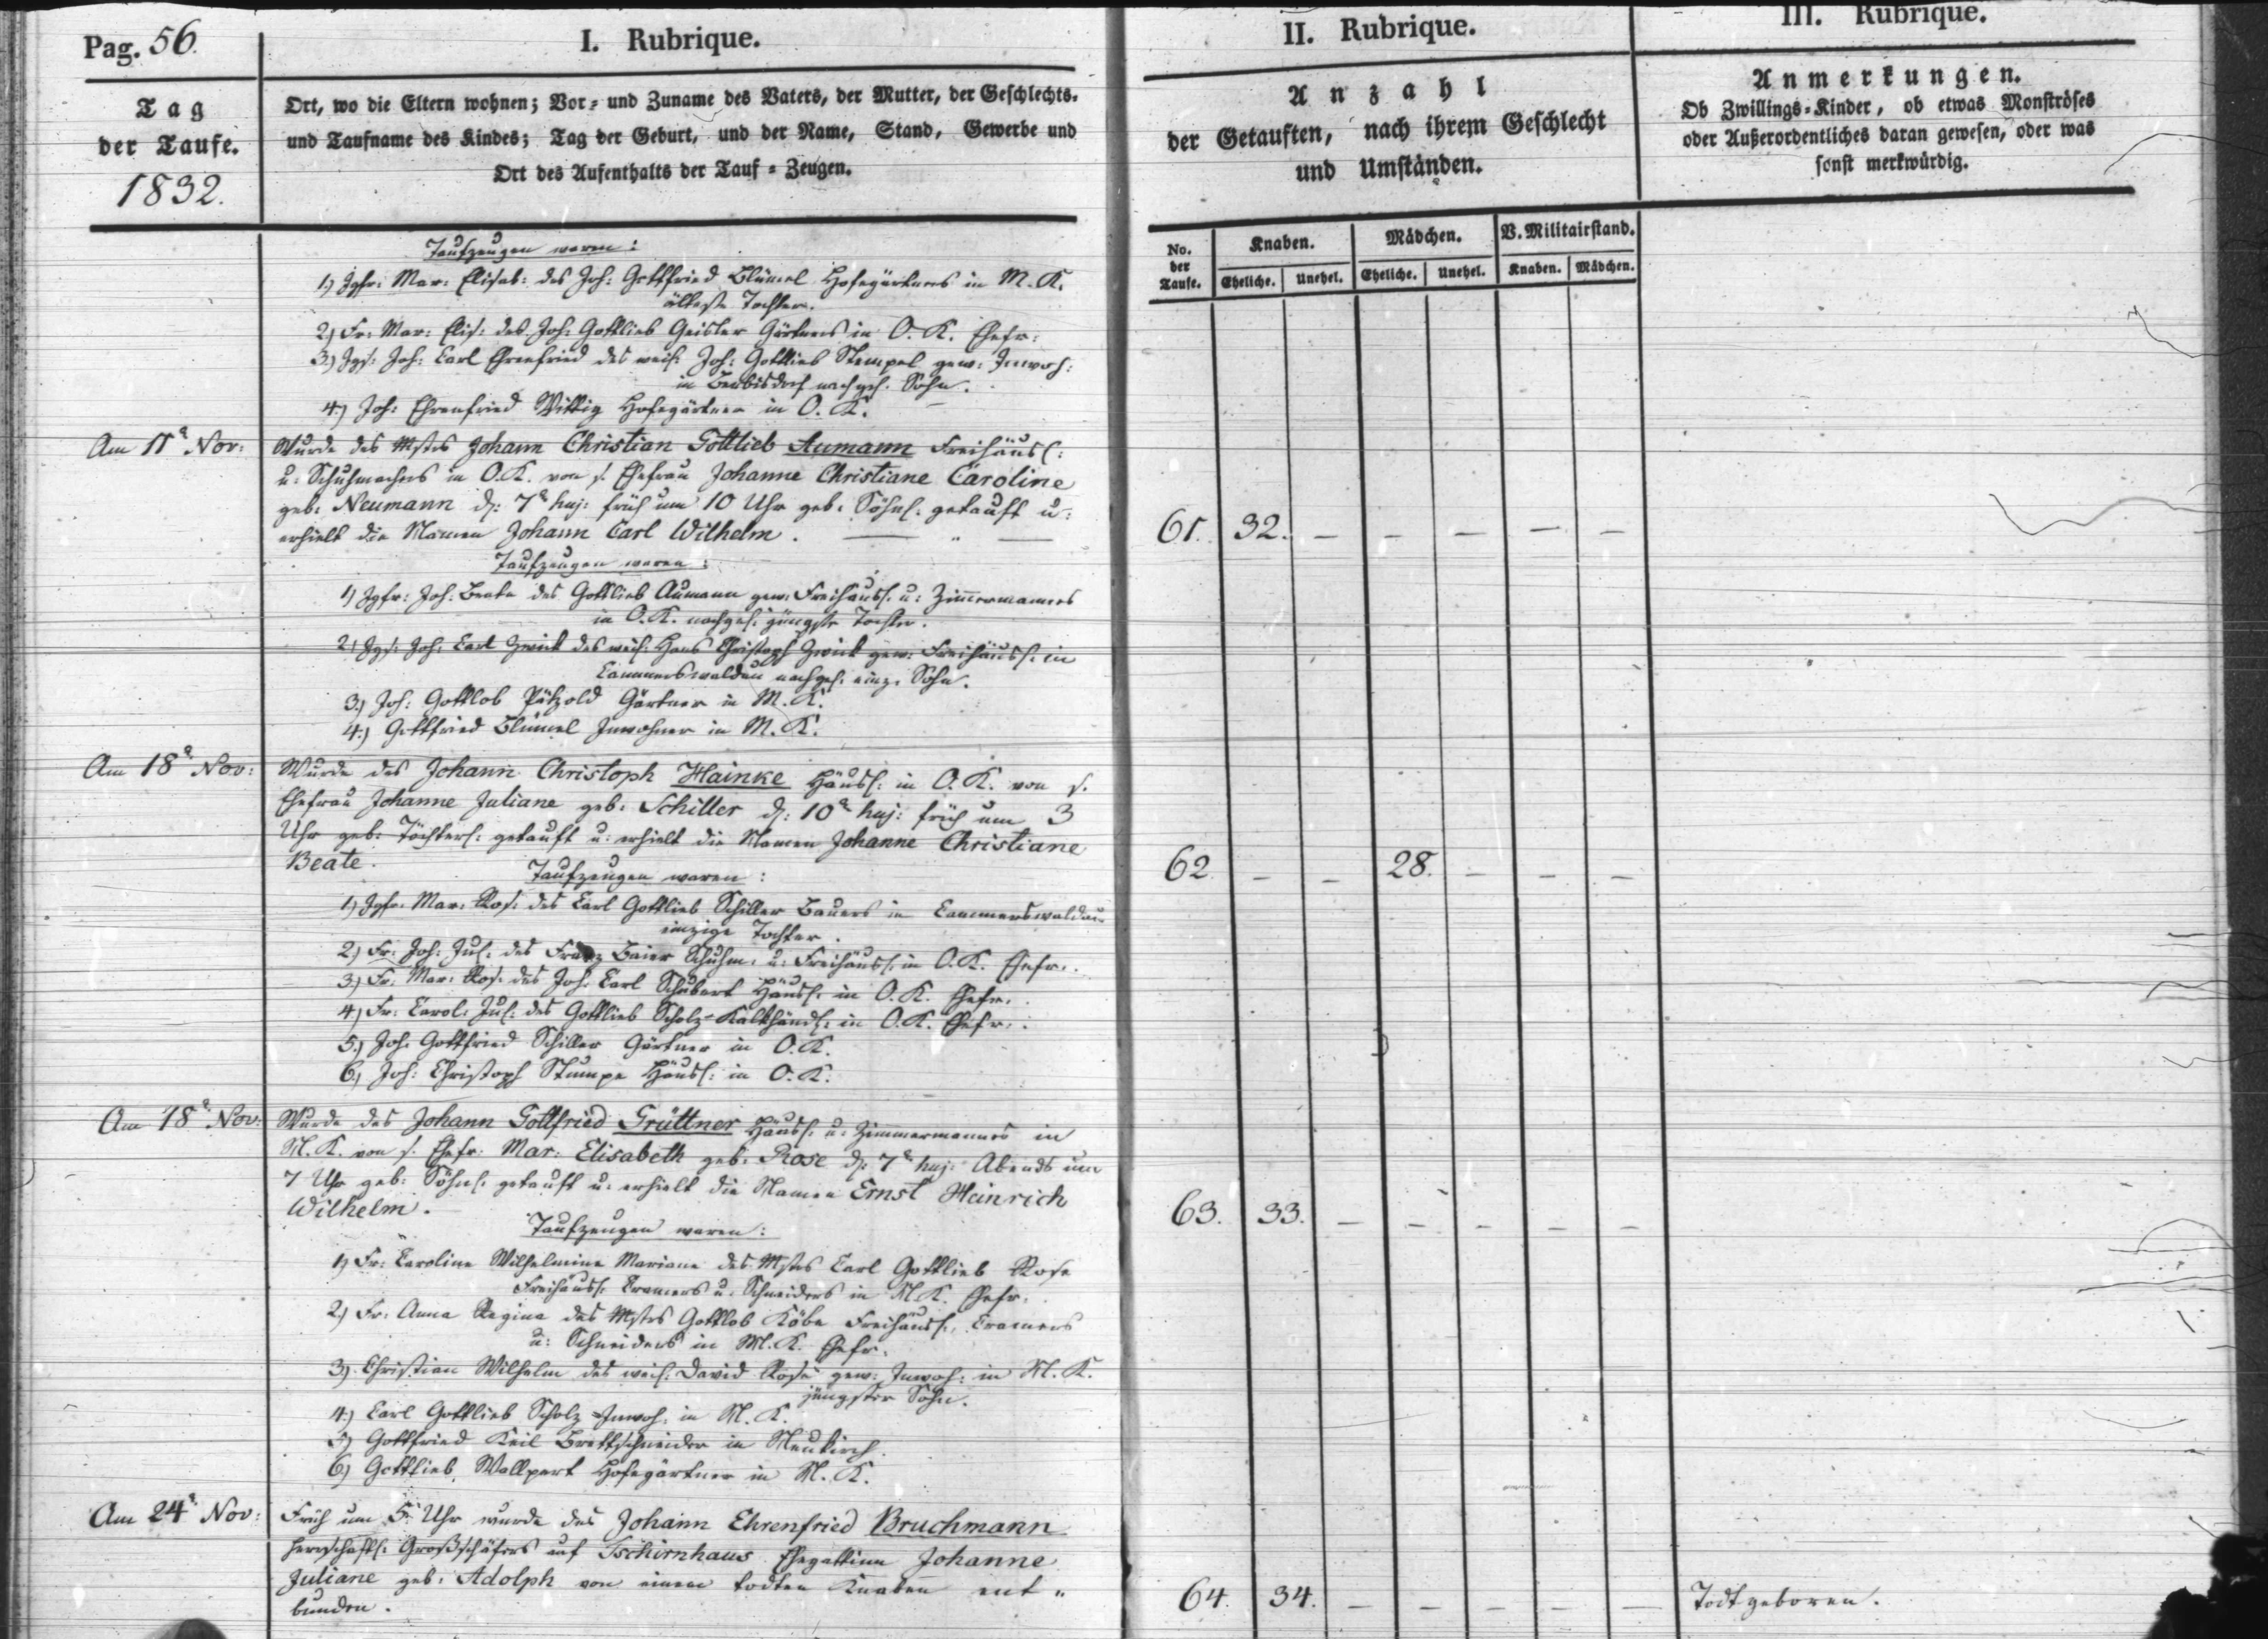 Pag. 56.
I. Rubrique.
Tag
der Taufe.
1832.
Ort, wo die Eltern wohnen; Vor- und Zuname des Vaters, der Mutter, der Geschlechts-
und Taufname des Kindes; Tag der Geburt, und der Name, Stand, Gewerbe und
Ort des Aufenthalts der Tauf-Zeugen.
Taufzeugen waren:
1.) Jgfr: Mar: Elisab: des Joh: Gottfried Blümel Hofegärtners in M. K.
älteste Tochter.
2) Fr: Mar: Elis: des Joh: Gottlieb Geisler Gärtners in O. K. Ehefr:
3) Jgs: Joh: Carl Ehrenfried des weil: Joh: Gottlieb Stempel gew: Inwoh:
in nachgel. Sohn.
4.) Joh: Ehrenfried Wittig Hofegärtner in O. K.
Am 11ᵗ Nov: Wurde des Mstrs Johann Christian Gottlieb Aumann Freihäusl:
u: Schuhmachers in O. K. von s. Ehefrau Johanne Christiane Caroline
geb: Neumann d: 7ᵗ huj: früh um 10 Uhr geb: Söhnl: getauft u:
erhielt die Namen Johann Carl Wilhelm.
Taufzeugen waren:
1) Jgfr: Joh: Beate des Gottlieb Aumann gew: Freihäusl: u: Zimmermanns
in O. K. nachgel: jüngste Tochter.
2) Jgs: Joh: Carl Zwick des weil: Hans Christoph Zwick gew: Freihäusl: in
Cammerswaldau nachgel: einz: Sohn.
3.) Joh: Gottlob Pätzold Gärtner in M. K.
4.) Gottfried Blümel Inwohner in M. K.
Am 18ᵗ Nov: Wurde des Johann Christoph Hainke Häusl: in O. K. von s.
Ehefrau Johanne Juliane geb: Schiller d: 10ᵗ huj: früh um 3
Uhr geb: Töchterl: getauft u: erhielt die Namen Johanne Christiane
Beate.
Taufzeugen waren:
1) Jgfr: Mar: Ros: des Carl Gottlieb Schiller Bauers in Cammerswaldau
einzige Tochter.
2) Fr: Joh: Jul: des Franz Baier Schuhm: u: Freihäusl: in O. K. Ehefr:
3) Fr: Mar: Ros: des Joh: Carl Schubert Häusl: in O. K. Ehefr:
4) Fr: Carol: Jul: des Gottlieb Scholz Kalkhändl: in O. K. Ehefr:
5.) Joh: Gottfried Schiller Gärtner in O. K.
6.) Joh: Christoph Stumpe Häusl: in O. K.
Am 18ᵗ Nov: Wurde des Johann Gottfried Grüttner Häusl: u: Zimmermannes in
M. K. von s. Ehefr: Mar: Elisabeth geb: Rose d: 7ᵗ huj: Abends um
7 Uhr geb: Söhnl: getauft u: erhielt die Namen Ernst Heinrich
Wilhelm.
Taufzeugen waren:
1) Fr: Caroline Wilhelmine Mariane des Mstrs Carl Gottlieb Rose
Freihäusl: Cramers u: Schneiders in M. K. Ehefr:
2) Fr: Anna Regina des Mstrs Gottlob Köbe Freihäusl: Cramers
u: Schneiders in M. K. Ehefr:
3) Christian Wilhelm des weil: David Rose gew: Inwoh: in M. K.
jüngster Sohn.
4) Carl Gottlieb Scholz Inwoh: in M. K.
5) Gottfried Keil Brettschneider in Neukirch.
6) Gottlieb Wallpert Hofegärtner in M. K.
Am 24ᵗ Nov: Früh um 5 Uhr wurde des Johann Ehrenfried Bruchmann
herrschaftl: Großschäfers auf Tschirnhaus Ehegattinn Johanne
Juliane geb: Adolph von einem todten Knaben ent-
bunden.
II. Rubrique.
Anzahl
der Getauften, nach ihrem Geschlecht
und Umständen.
No. der Taufe.
Knaben. Mädchen. V. Militairstand.
Eheliche. Unehel. Eheliche. Unehel. Knaben. Mädchen.
61. 32. – – – – –
62. – – 28. – – –
63. 33. – – – – –
64. 34. – – – – –
III. Rubrique.
Anmerkungen.
Ob Zwillings-Kinder, ob etwas Monströses
oder Außerordentliches daran gewesen, oder was
sonst merkwürdig.
Todtgeboren.